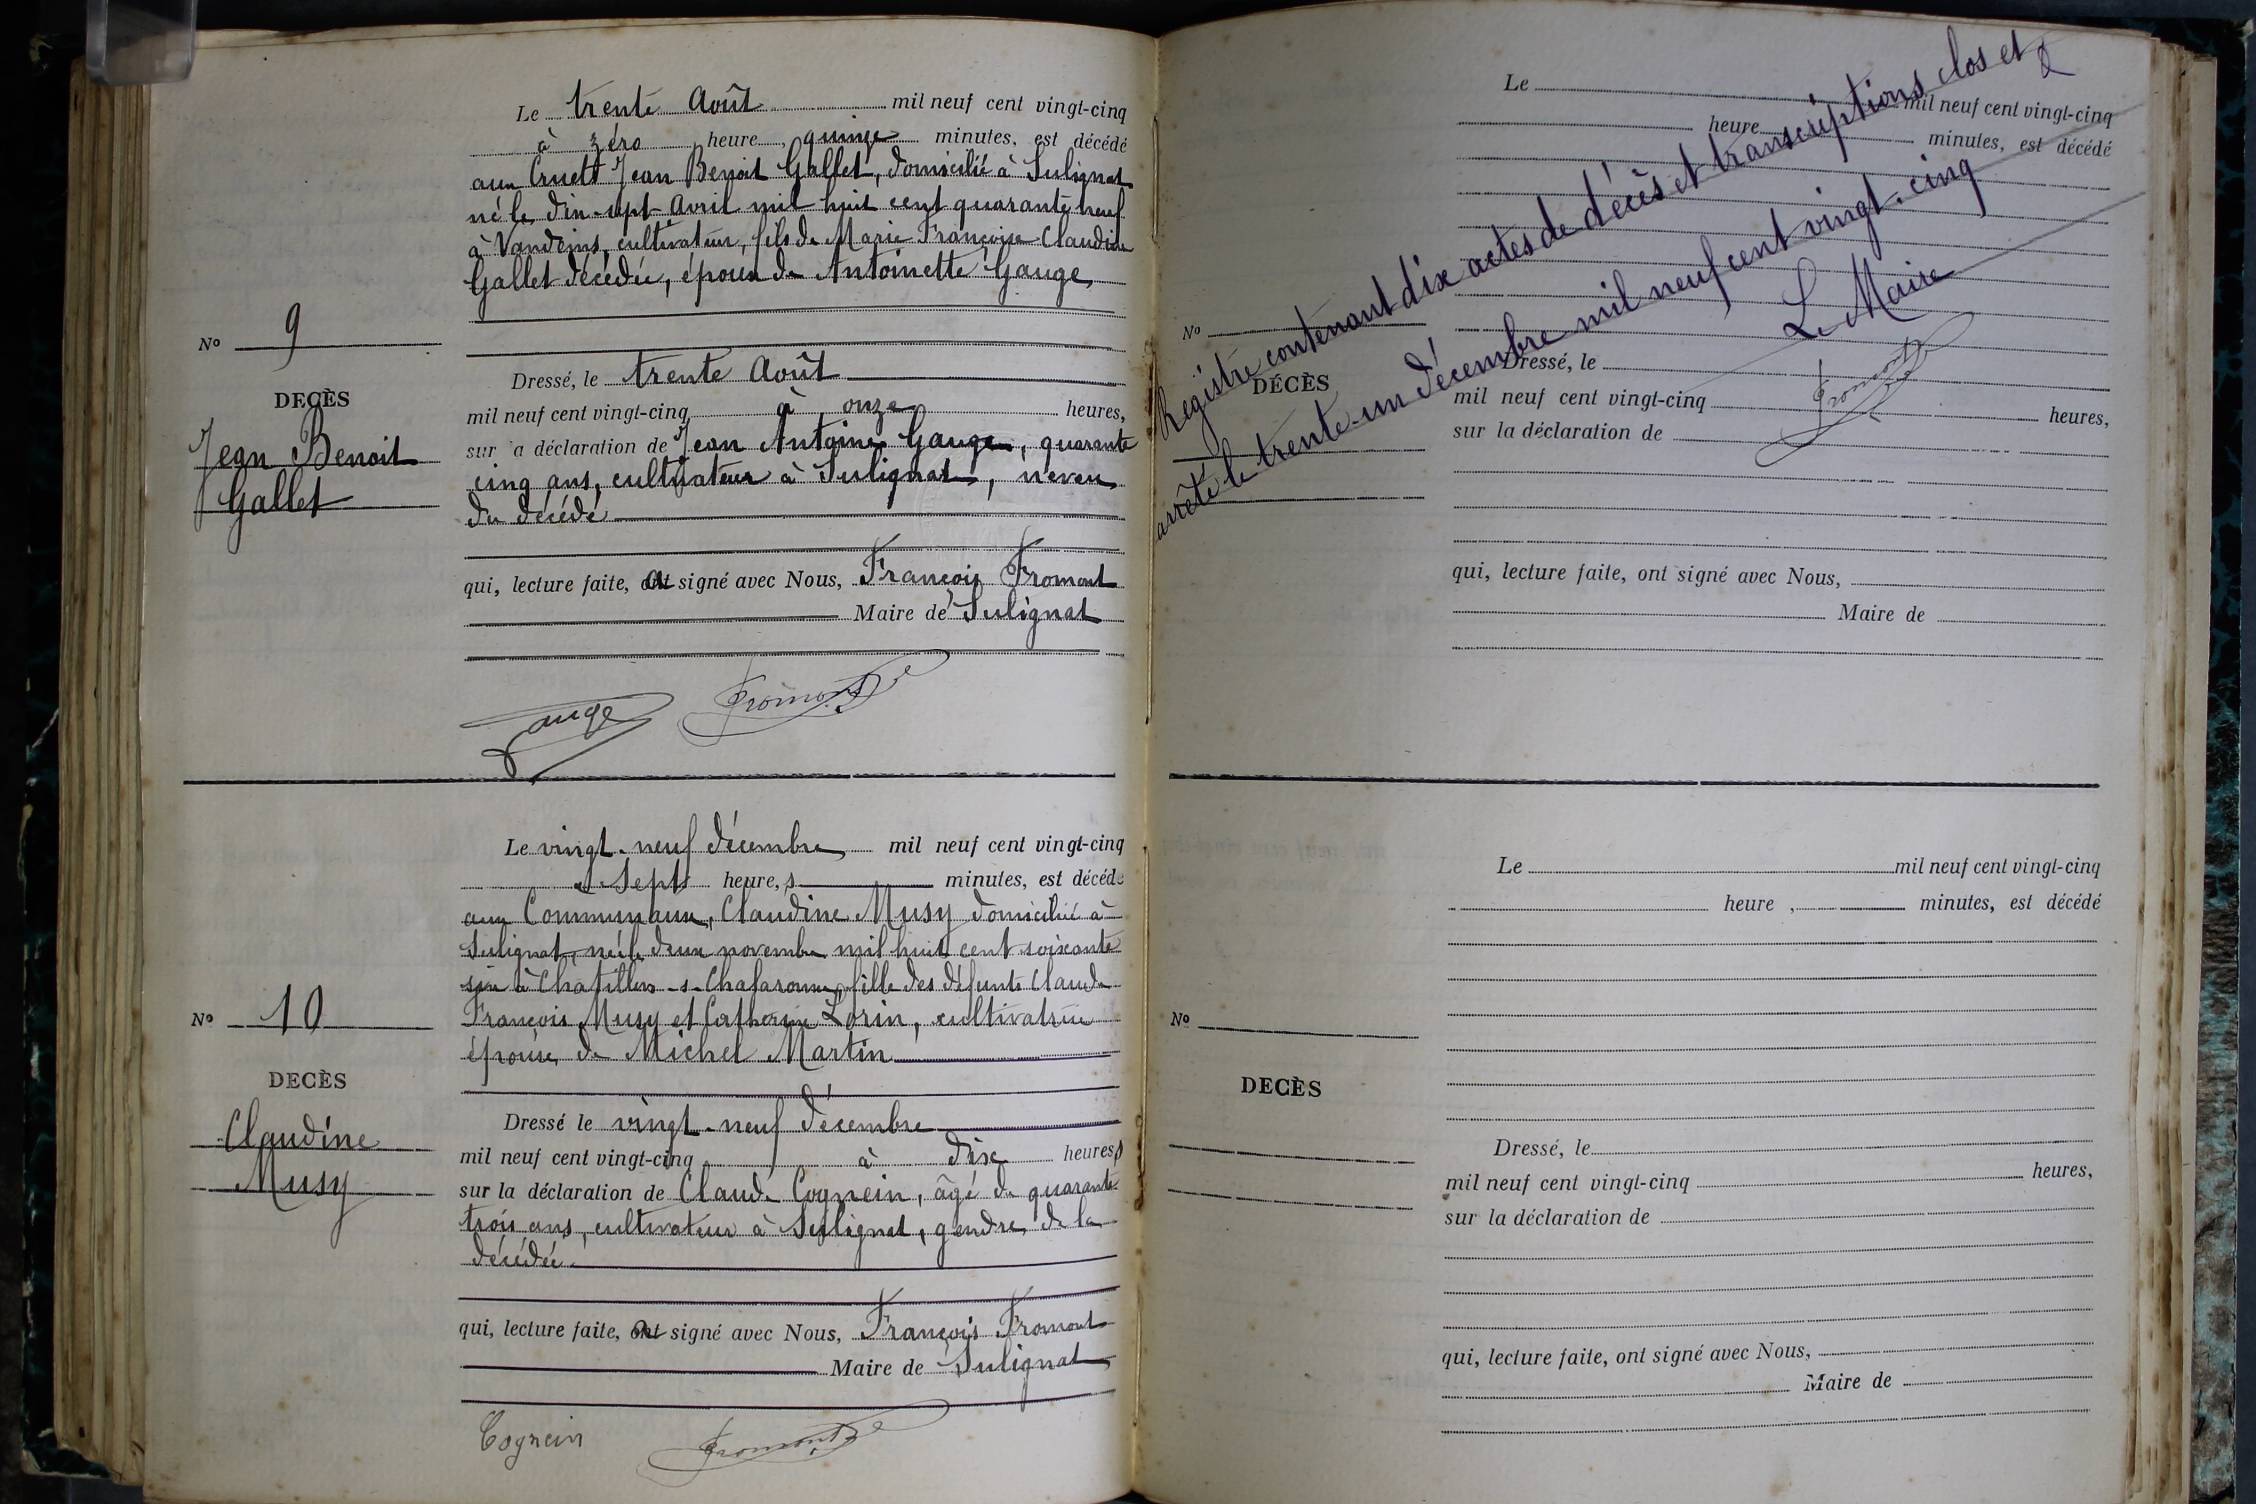 Le trente Août mil neuf cent vingt-cinq
à zéro heure, quinze minutes, est décédé
aux Cruets Jean Benoit Gallet, domicilié à Sulignat
né le dix-sept Avril mil huit cent quarante neuf
à Vandeins, cultivateur, fils de Marie Françoise Claudine
Gallet décédée, époux de Antoinette Gauge
No 9
DECÈS
Jean Benoit
Gallet
Dressé, le trente Août
mil neuf cent vingt-cinq à onze heures,
sur la déclaration de Jean Antoine Gauge, quarante
cinq ans, cultivateur à Sulignat, neveu
du décédé
qui, lecture faite, a signé avec Nous, François Fromont
Maire de Sulignat
Gauge Fromont
Le vingt-neuf décembre mil neuf cent vingt-cinq
à sept heure,s minutes, est décédé
aux Communaux, Claudine Musy domiciliée à
Sulignat, née le deux novembre mil huit cent soixante
six à Châtillon-s-Chalaronne, fille des défunts Claude
François Musy et Catherine Lorin, cultivatrice
épouse de Michel Martin
No 10
DECÈS
Claudine
Musy
Dressé le vingt-neuf décembre
mil neuf cent vingt-cinq à dix heures,
sur la déclaration de Claude Cognein, âgé de quarante
trois ans, cultivateur à Sulignat, gendre de la
décédée
qui, lecture faite, a signé avec Nous, François Fromont
Maire de Sulignat
Cognein Fromont
Registre contenant dix actes de décès et transcriptions clos et
arrêté le trente-un décembre mil neuf cent vingt-cinq
Le Maire
Fromont
Le mil neuf cent vingt-cinq
heure minutes, est décédé
No
DÉCÈS
Dressé, le
mil neuf cent vingt-cinq heures,
sur la déclaration de
qui, lecture faite, ont signé avec Nous,
Maire de
Le mil neuf cent vingt-cinq
heure , minutes, est décédé
No
DECÈS
Dressé, le
mil neuf cent vingt-cinq heures,
sur la déclaration de
qui, lecture faite, ont signé avec Nous,
Maire de